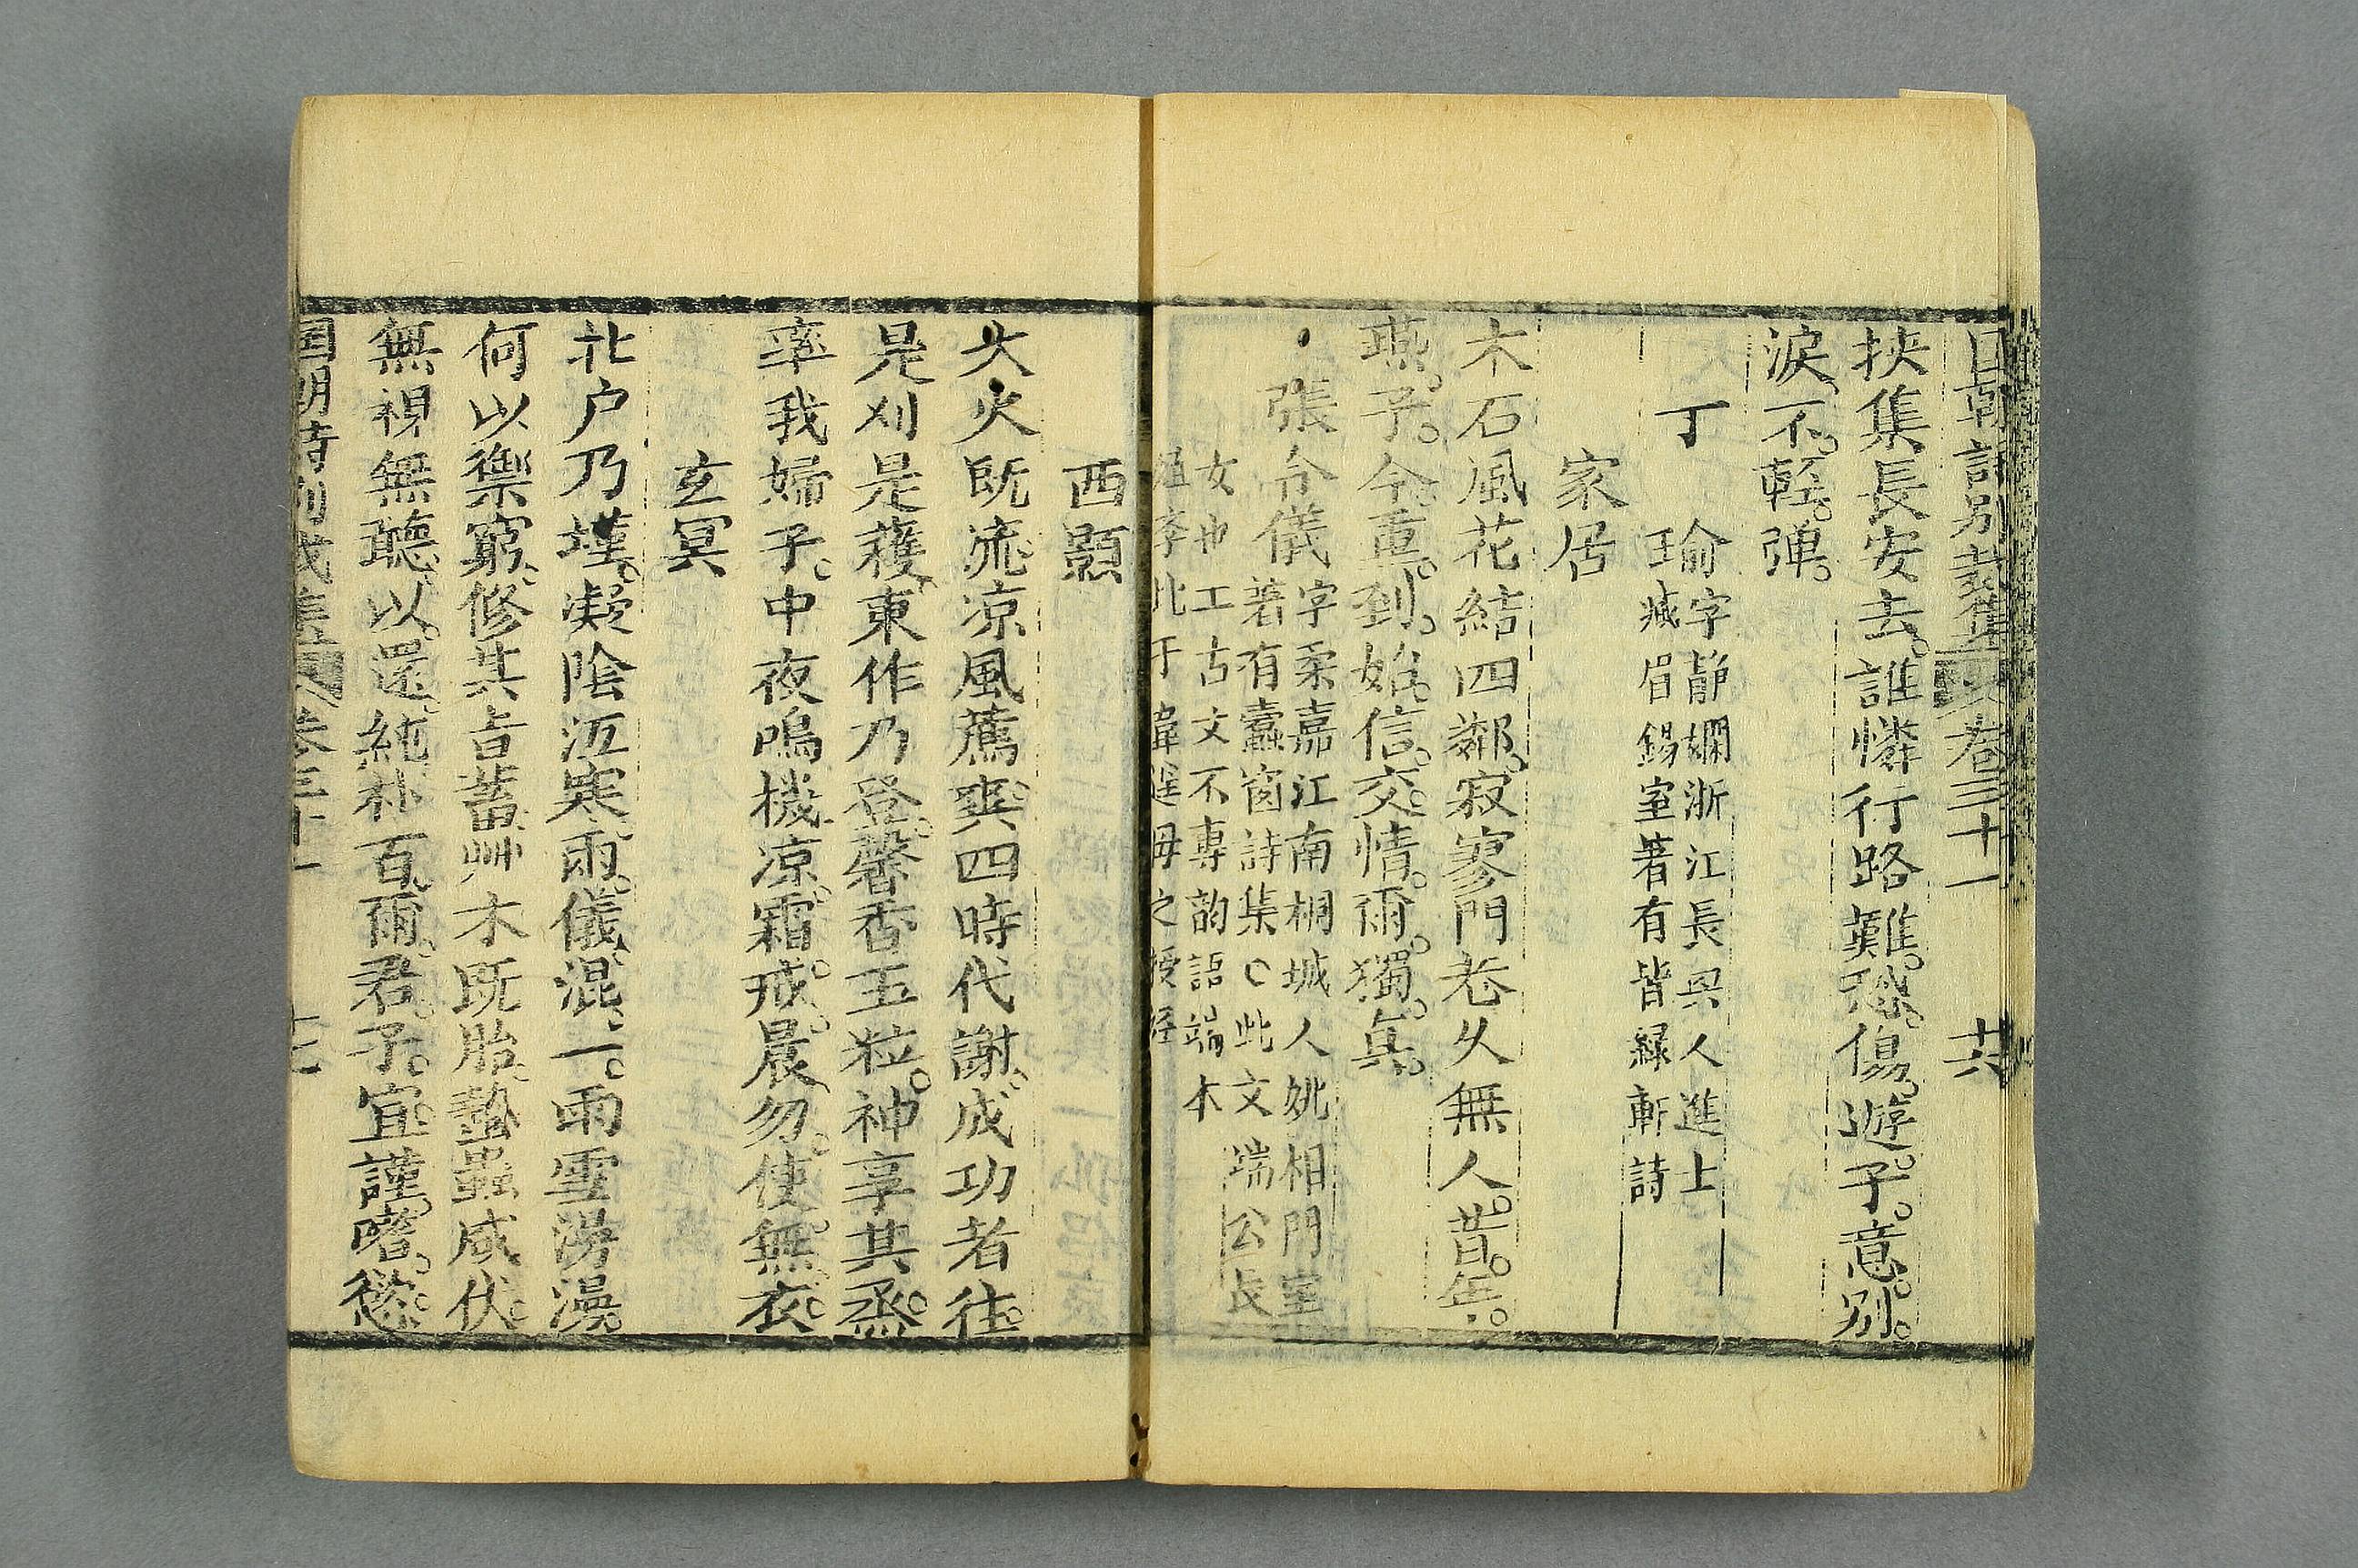 國朝詩別裁集 卷三十一 十六
挾集長安去誰憐行路難恐傷遊子意別
淚不輕彈
丁瑜字靜嫻浙江長興人進士
臧眉錫室著有皆綠軒詩
家居
木石風花結四鄰寂寥門巷久無人昔年
燕子今重到始信交情爾獨真
張令儀字柔嘉江南桐城人姚相門室
著有蠹窗詩集○此文端公長
女也工古文不專韵語端本
於李北于韋逞母之授經
西顥
大火既流凉風薦爽四時代謝成功者往
是刈是穫東作乃登馨香玉粒神享其烝
率我婦子中夜鳴機凉霜戒晨勿使無衣
玄冥
北户乃墐凝陰沍寒兩儀混一雨雪滂澡
何以禦窮修其旨蓄艸木既胎蟄蟲咸伏
無視無聽以還純朴百爾君子宜謹嗜慾
國朝詩別裁集 卷三十一 十七